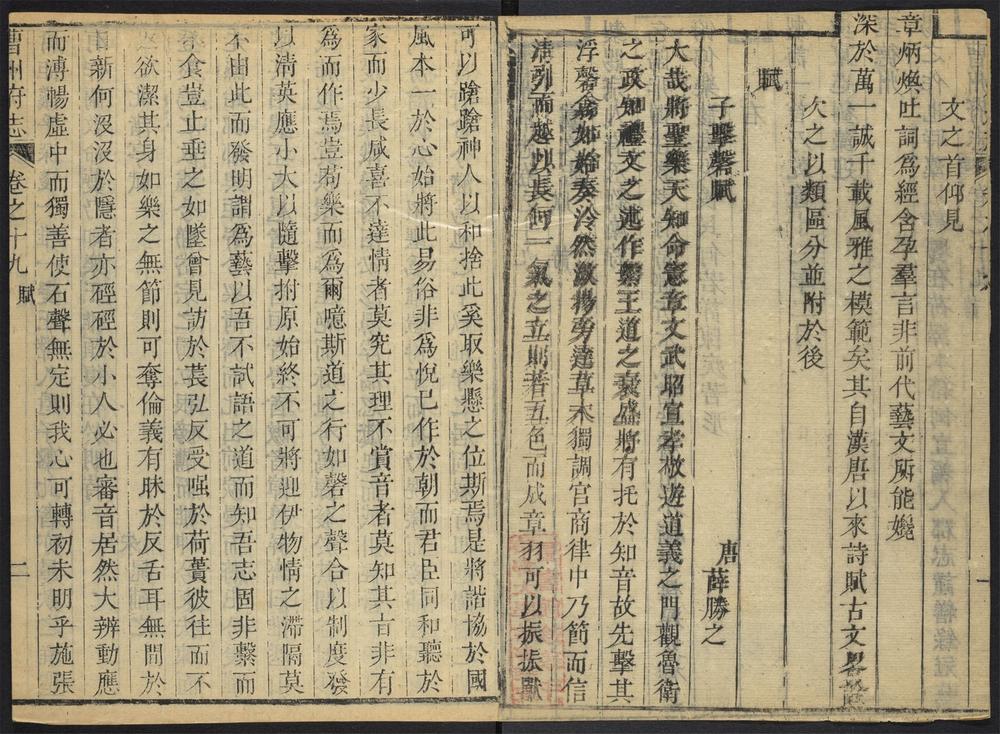 文之首仰見
章炳煥吐詞爲經含孕羣言非前代藝文所能孅
深於萬一誠千載風雅之模範矣其自漢唐以來詩賦古文
欠之以類區分並附於後
賦
子擊磬賦
唐薛勝之
大哉將聖樂天知命憲章文武昭宣孝敬遊道義之門觀魯衛
之政知禮文之述作繫王道之衰盛將有托於知音故先擊其
浮磬翕如始奏泠然激揚旁達草木獨調宮商律中乃節而信
清引而越以長何一氣之立則若五色而成章羽可以振振獸
可以蹌蹌神人以和捨此奚取樂懸之位斯焉是將諧協於國
風本一於心始將此易俗非爲悅已作於朝而君臣同和聽於
家而少長咸喜不達情者莫究其理不賞音者莫知其旨非有
爲而作焉豈苟樂而爲爾噫斯道之行如磬之聲合以制度發
以清英應小大以隨擊拊原始終不可將迎伊物情之滯隔莫
不由此而發明謂爲藝以吾不試語之道而知吾志固非繫而
不食豈止垂之如墜曾見訪於萇弘反受嗤於荷蕢彼往而不
欲潔其身如樂之無節則可奪倫義有昧於反舌耳無間於
日新何沒沒於隱者亦硜硜於小人必也審音居然大辨動應
而溥暢虛中而獨善使石聲無定則我心可轉初未明乎施張
曹州府志
卷之十九
賦
二